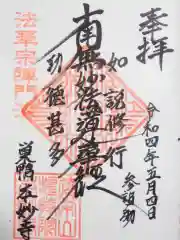 奉拝
令和四年五月四日
如説修行
参詣
南無妙法蓮華経
功徳甚多
法華宗陣門
巣鴨本妙寺